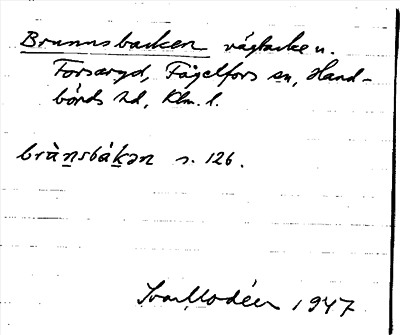 Brunnsbacken vägbacke u.
Forsaryd, Fågelfors sn, Hand-
börds hd, Klm. l.
brùnsbákən s. 126.
Ivar Modéer 1947